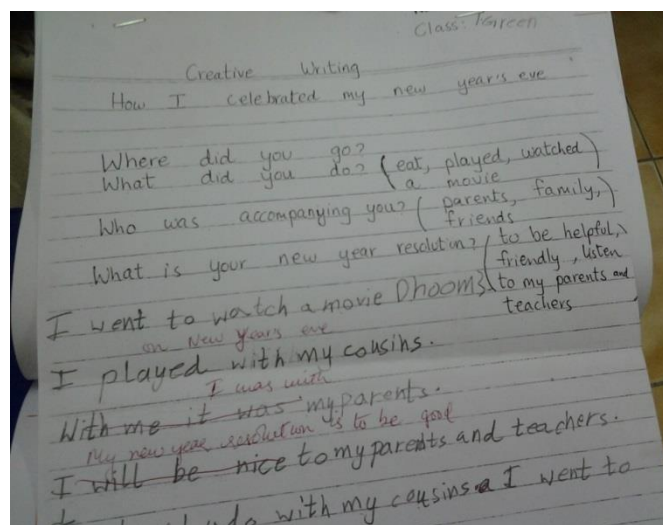 Class: 1Green
Creative Writing
How I celebrated my new year's eve
Where did you go?
What did you do? (eat, played, watched
a movie)
Who was accompanying you? (parents, family,
friends)
What is your new year resolution? (to be helpful,
friendly, listen
to my parents and
teachers)
I went to watch a movie Dhoom3
on New Years eve
I played with my cousins.
I was with
With me it was my parents.
My new year resolution is to be good
I will be nice to my parents and teachers.
with my cousins I went to